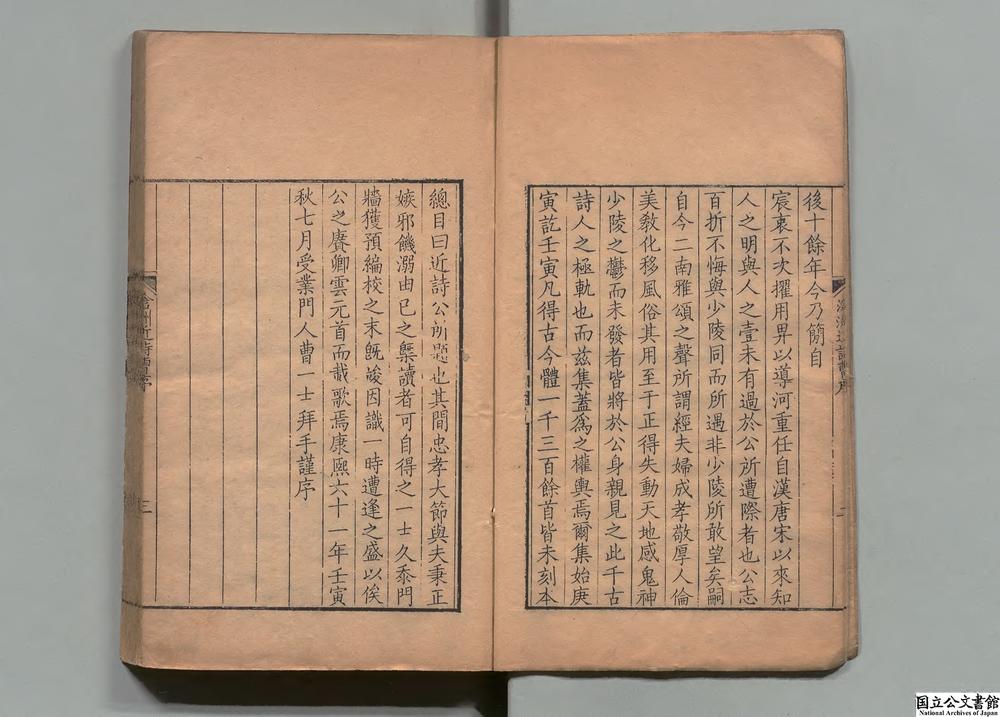 後十餘年今乃簡自
宸衷不次擢用畀以導河重任自漢唐宋以來知
人之明與人之壹未有過於公所遭際者也公志
百折不悔與少陵同而所遇非少陵所敢望矣嗣
自今二南雅頌之聲所謂經夫婦成孝敬厚人倫
美教化移風俗其用至于正得失動天地感鬼神
少陵之鬱而未發者皆將於公身親見之此千古
詩人之極軌也而兹集蓋爲之權輿焉爾集始庚
寅訖壬寅凡得古今體一千三百餘首皆未刻本
二
總目曰近詩公所題也其間忠孝大節與夫秉正
嫉邪饑溺由已之槩讀者可自得之一士久忝門
牆獲預編校之末旣竣因識一時遭逢之盛以俟
公之賡卿雲元首而載歌焉康熙六十一年壬寅
秋七月受業門人曹一士拜手謹序
三
国立公文書館
National Archives of Japan